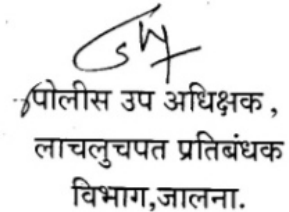 पोलीस उप अधिक्षक,
लाचलुचपत प्रतिबंधक
विभाग,जालना.